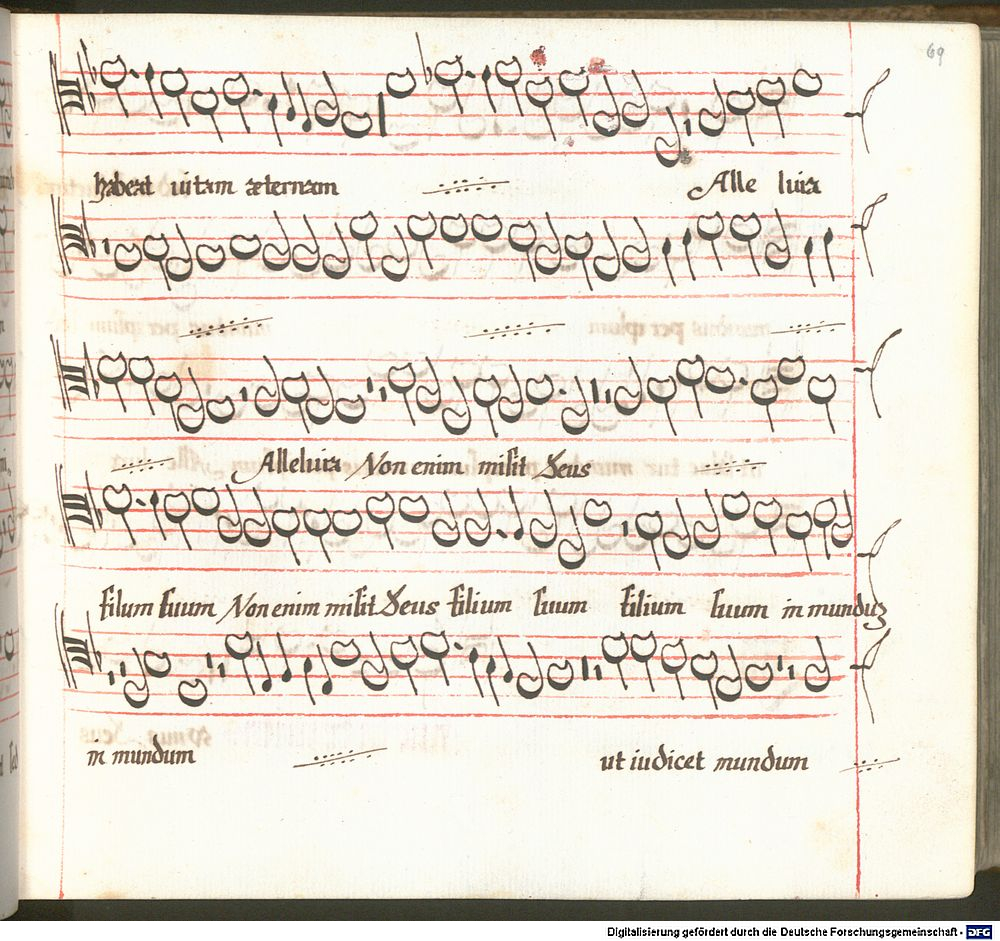 69
habeat uitam æternam Alle luia
Alleluia Non enim misit Deus
filum suum Non enim misit Deus filium suum filium suum in munduz
in mundum ut iudicet mundum
Digitalisierung gefördert durch die Deutsche Forschungsgemeinschaft - DFG